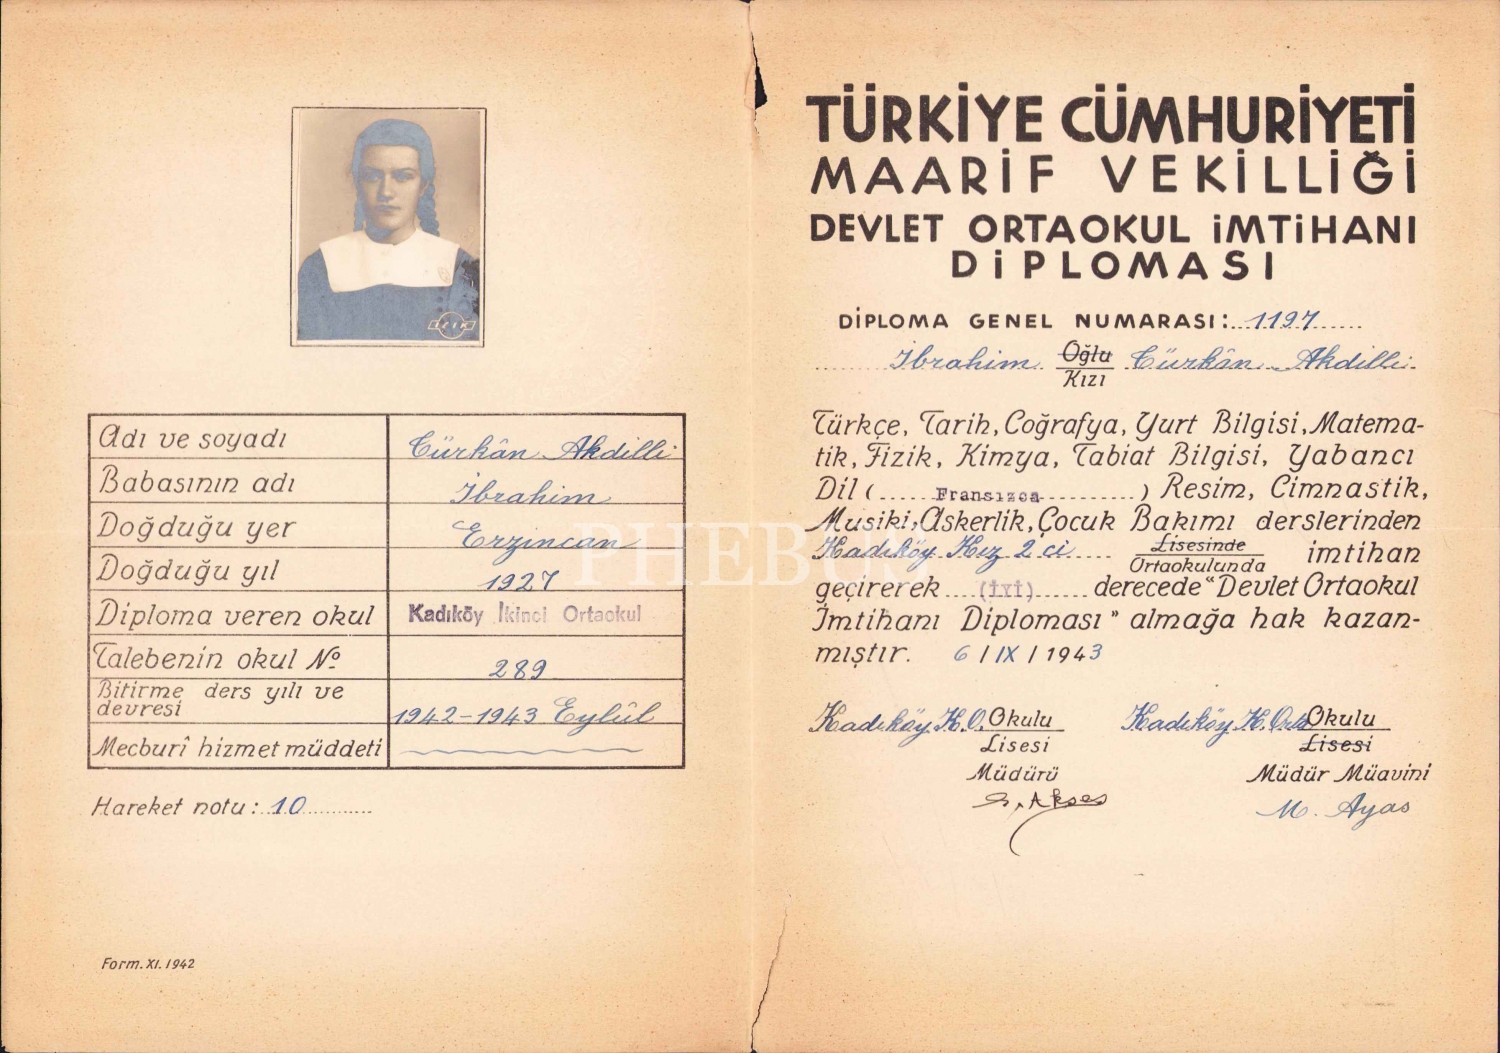 Adı ve soyadı Türkân Akdilli
Babasının adı İbrahim
Doğduğu yer Erzincan
Doğduğu yıl 1927
Diploma veren okul Kadıköy İkinci Ortaokul
Talebenin okul No 289
Bitirme ders yılı ve
devresi 1942-1943 Eylûl
Mecburî hizmet müddeti
Hareket notu: 10
Form. XI. 1942
TÜRKİYE CÜMHURİYETİ
MAARİF VEKİLLİĞİ
DEVLET ORTAOKUL İMTİHANI
DİPLOMASI
DİPLOMA GENEL NUMARASI: 1197
İbrahim Oğlu Türkân Akdilli
Kızı
Türkçe, Tarih, Coğrafya, Yurt Bilgisi, Matema-
tik, Fizik, Kimya, Tabiat Bilgisi, Yabancı
Dil (Fransızca) Resim, Cimnastik,
Musiki, Askerlik, Çocuk Bakımı derslerinden
Kadıköy Kız 2 ci Lisesinde imtihan
Ortaokulunda
geçirerek (İyi) derecede "Devlet Ortaokul
İmtihanı Diploması" almağa hak kazan-
mıştır. 6 / IX / 1943
Kadıköy K. O. Okulu
Lisesi
Müdürü
Akses
Kadıköy K. Orta Okulu
Lisesi
Müdür Müavini
M. Ayas
PHEBUS